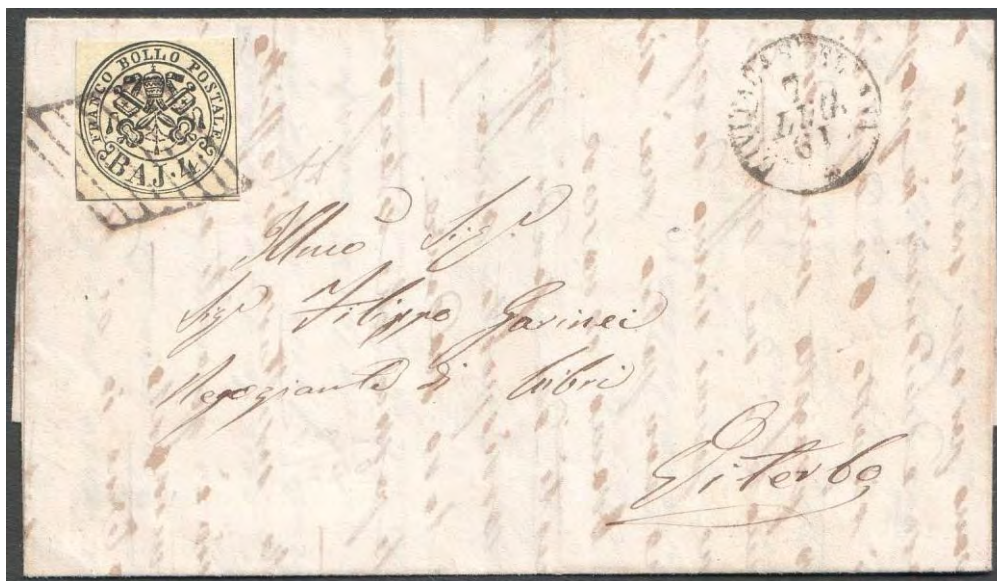 FRANCO BOLLO POSTALE
BAJ. 4
7
LUG.
61
Illmo Sigr.
Sigr Filippo Garinei
Negoziante di Libri
Viterbo